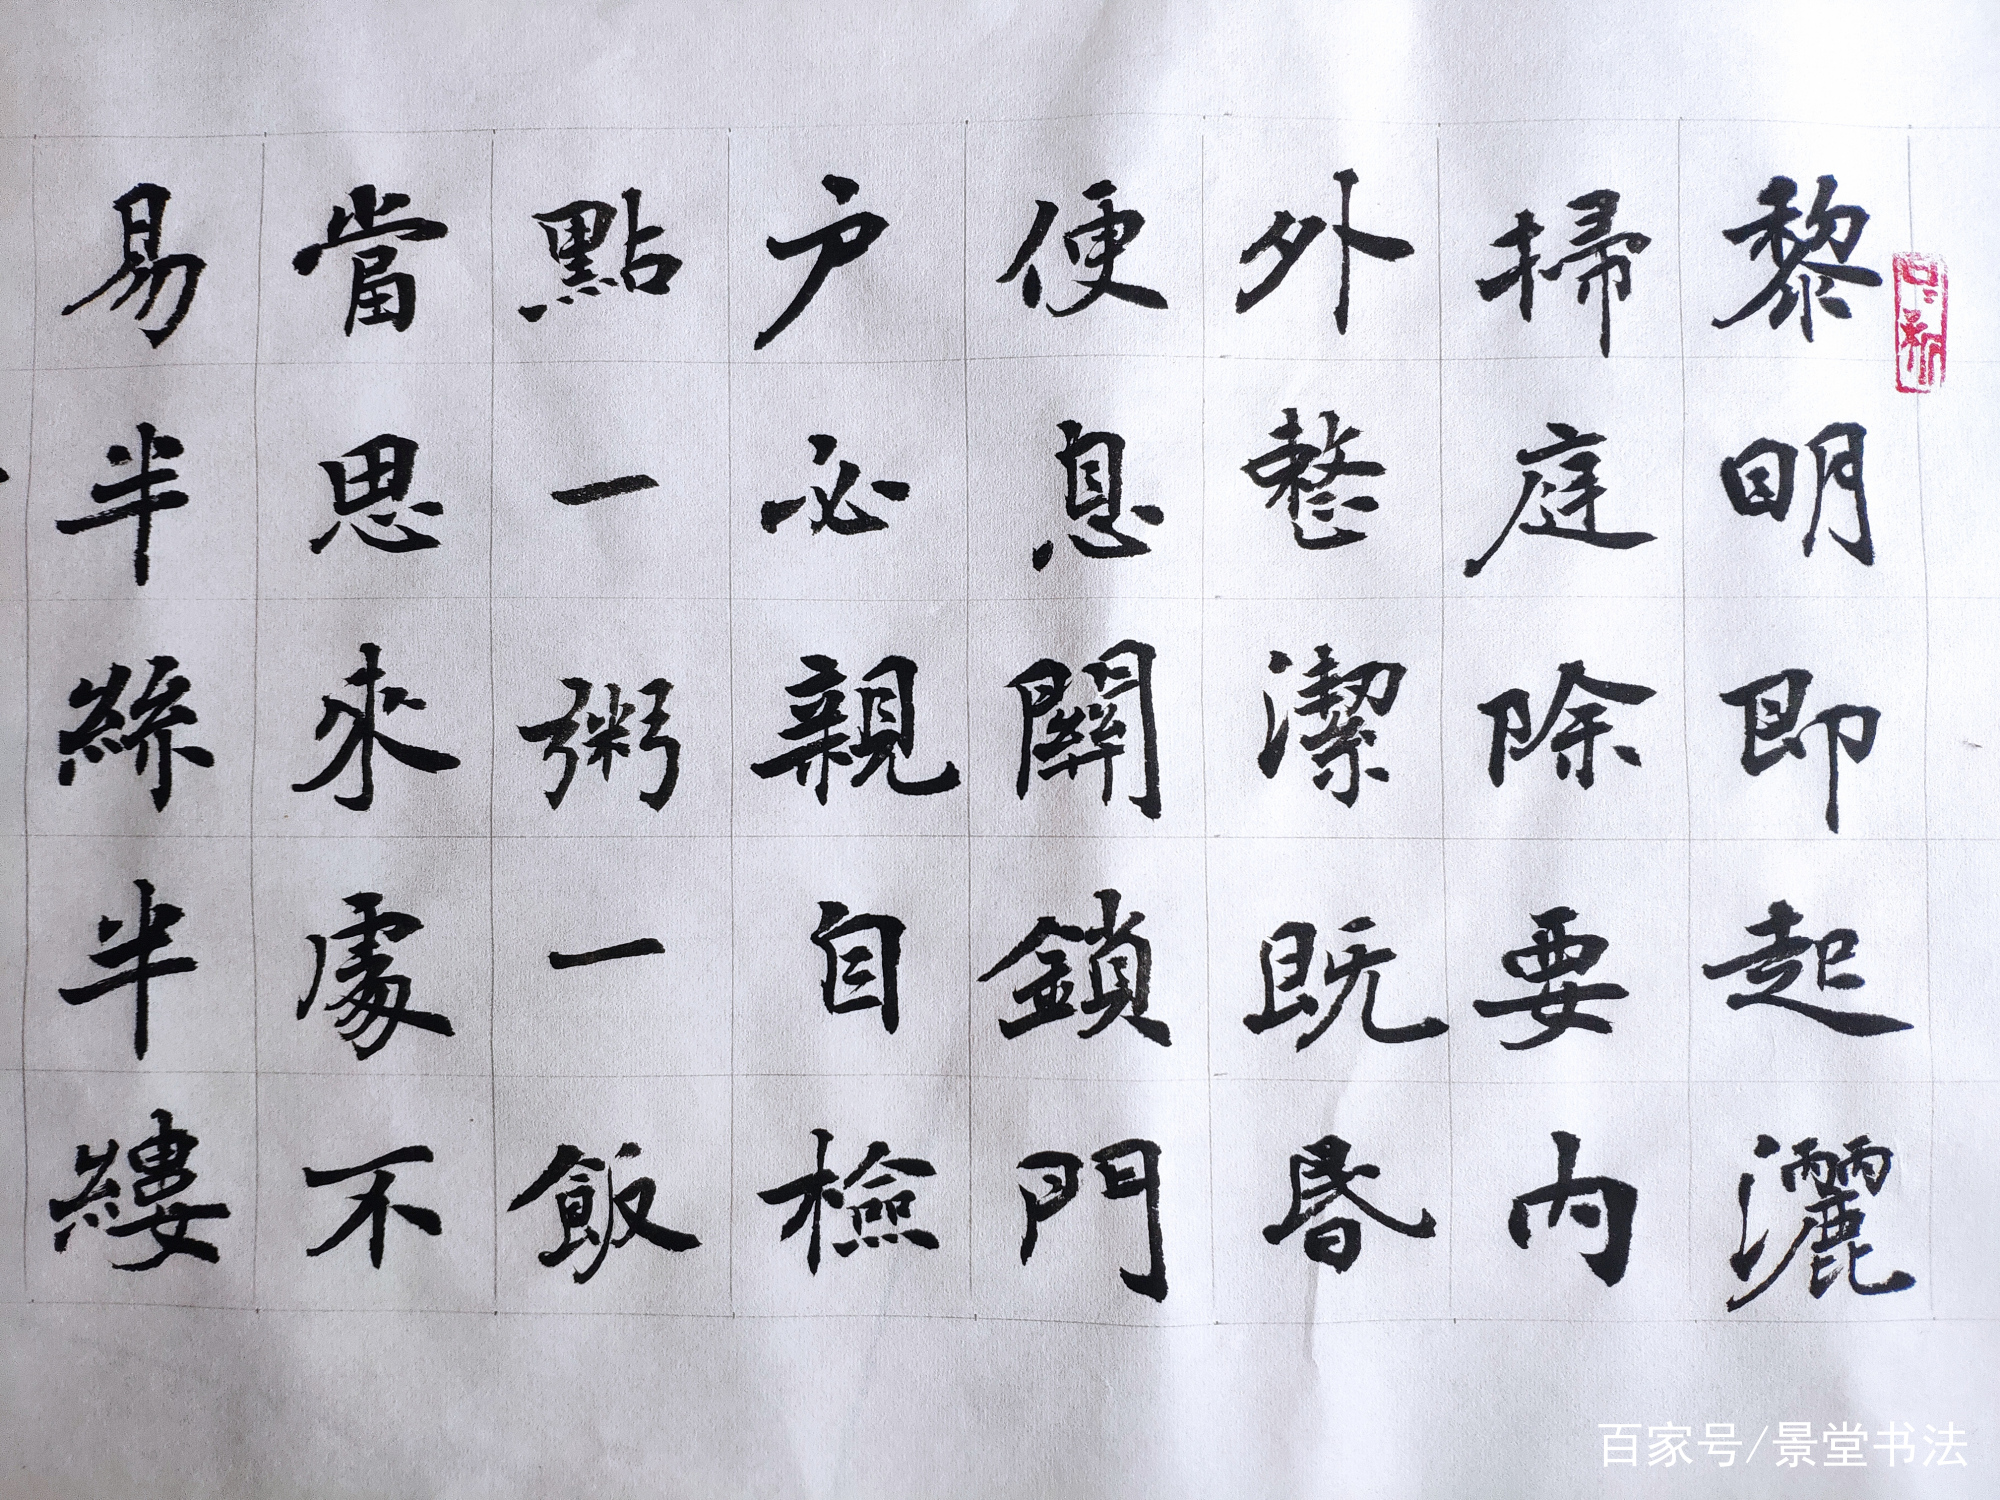 黎明即起灑
掃庭除要内
外整潔既昬
便息關鎖門
户必親自檢
點一粥一飯
當思來處不
易半絲半縷
百家号/景堂书法